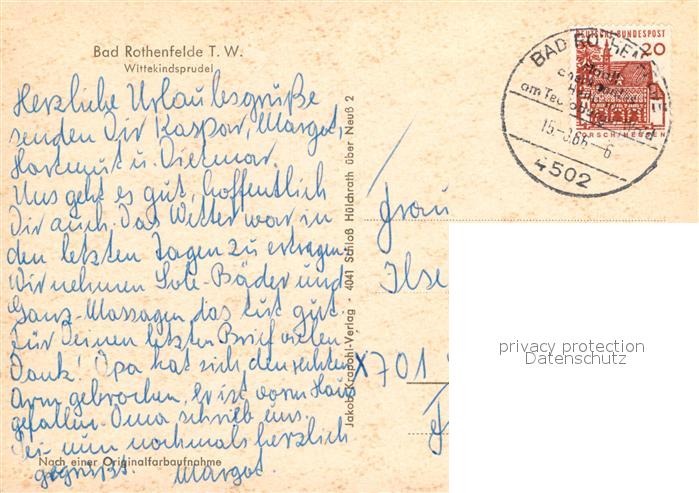 Bad Rothenfelde T. W.
Wittekindsprudel
Herzliche Urlaubsgrüße
senden Dir Kaspar, Margot,
Hartmut u. Dietmar.
Uns geht es gut, hoffentlich
Dir auch. Das Wetter war in
den letzten Tagen zu ertragen.
Wir nehmen Sole-Bäder und
Ganz-Massagen, das tut gut.
Für Deinen letzten Brief vielen
Dank! Opa hat sich den rechten
Arm gebrochen, er ist vorm Haus
gefallen. Oma schrieb uns.
Sei nun nochmals herzlich
gegrüßt. Margot.
Nach einer Originalfarbaufnahme
Jakob Krapohl-Verlag · 4041 Schloß Hülchrath über Neuß 2
DEUTSCHE BUNDESPOST
20
LORSCH/HESSEN
BAD ROTHENFELDE
am Teutoburger
4502
Frau
Ilse
X701
privacy protection
Datenschutz